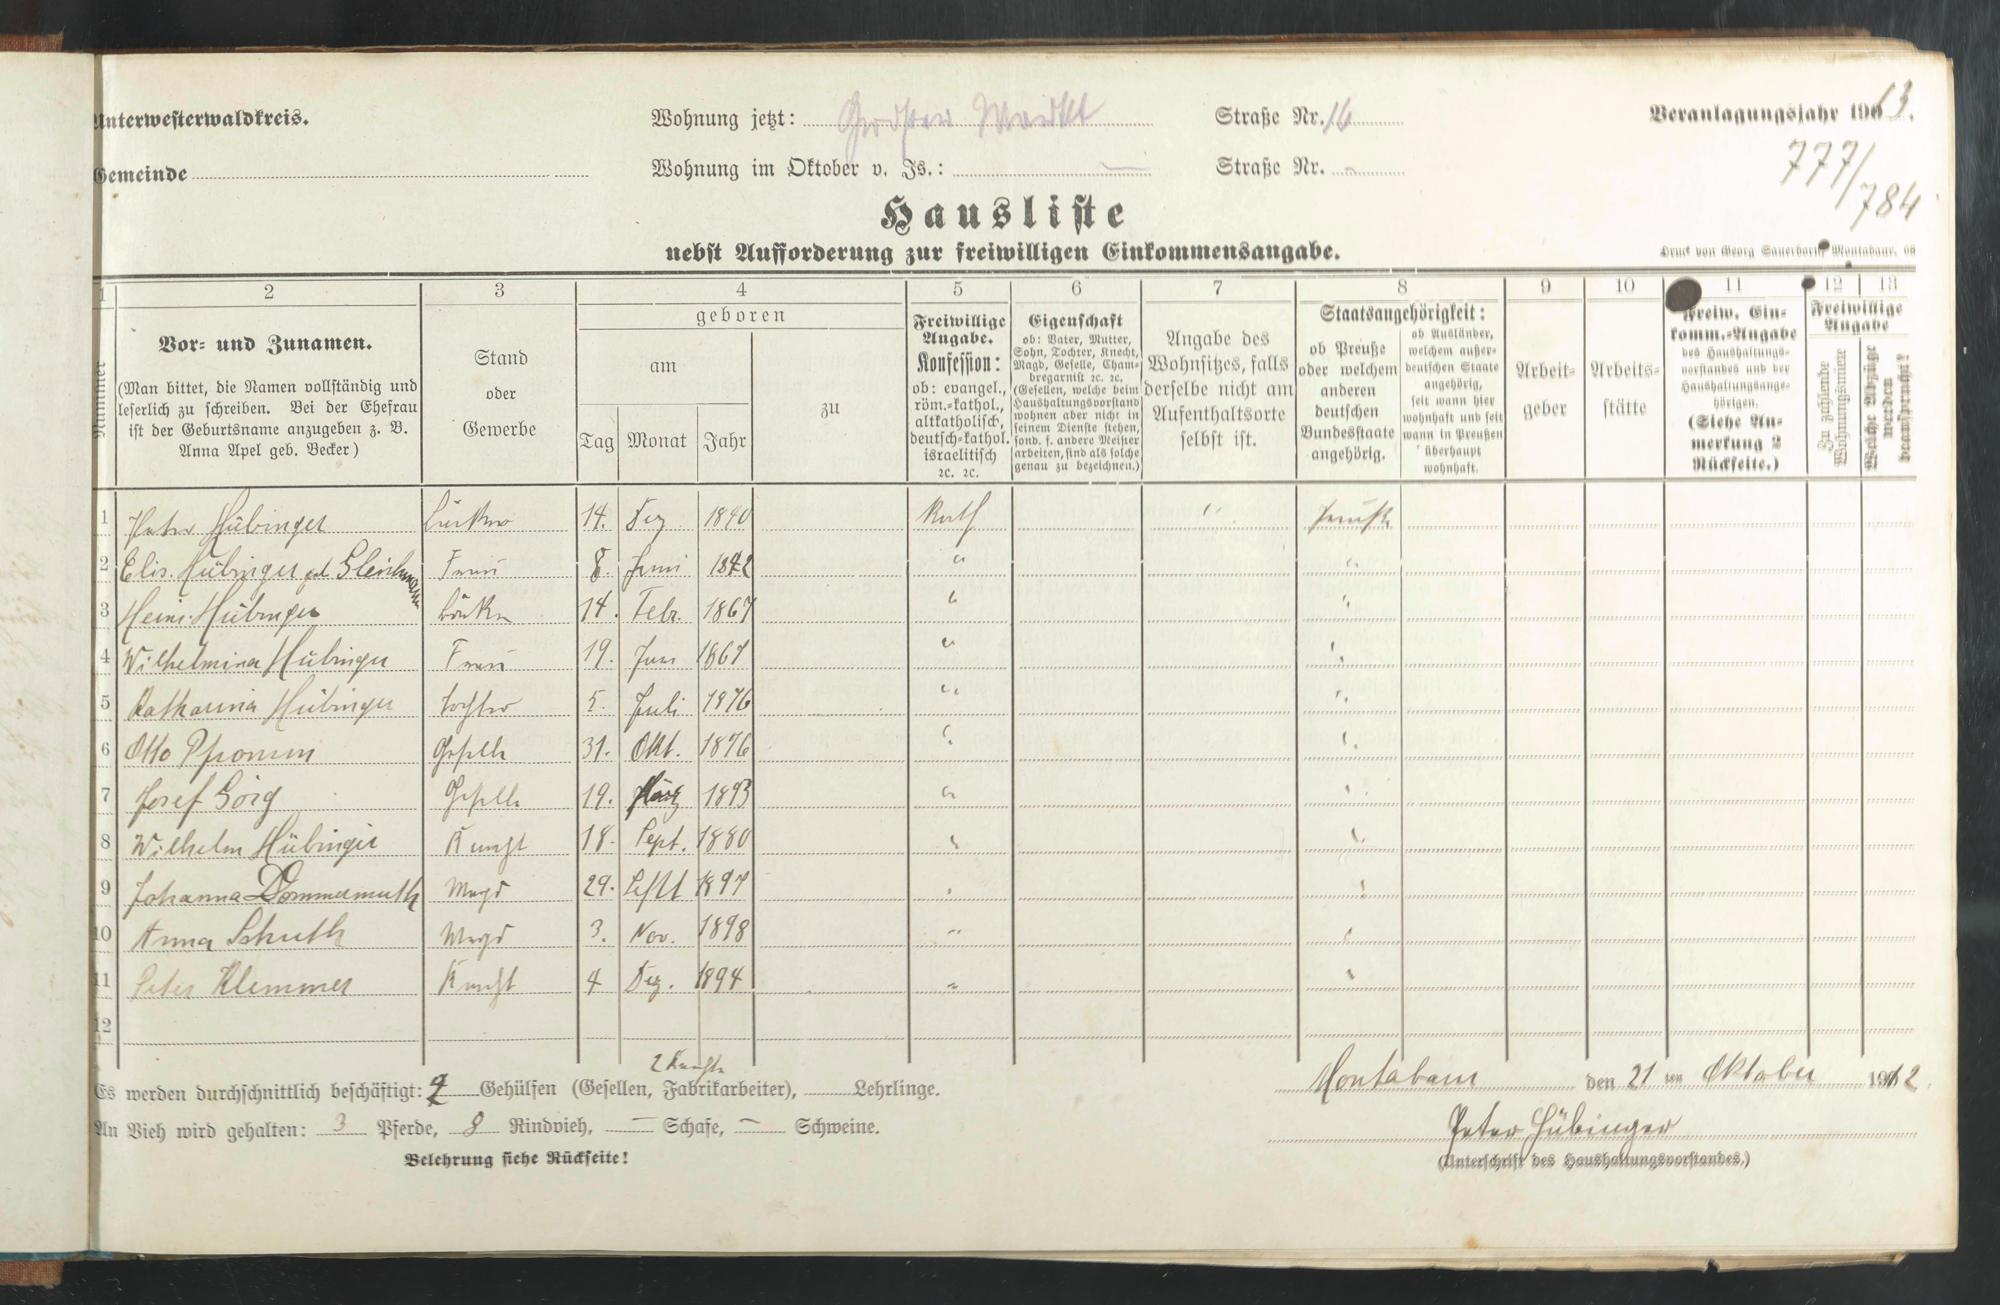 Unterwesterwaldkreis.
Wohnung jetzt: Großer Markt Straße Nr. 16
Veranlagungsjahr 1913.
Gemeinde
Wohnung im Oktober v. Js.: — Straße Nr. -
777/784
Hausliste
nebst Aufforderung zur freiwilligen Einkommensangabe.
Druck von Georg Sauerborn, Montabaur. 08
1 2 3 4 5 6 7 8 9 10 11 12 13
Nummer
Vor- und Zunamen.
(Man bittet, die Namen vollständig und
leserlich zu schreiben. Bei der Ehefrau
ist der Geburtsname anzugeben z. B.
Anna Apel geb. Becker)
Stand
oder
Gewerbe
geboren
am
zu
Tag Monat Jahr
Freiwillige
Angabe.
Konfession:
ob: evangel.,
röm.-kathol.,
altkatholisch,
deutsch-kathol.
israelitisch
2c. 2c.
Eigenschaft
ob: Vater, Mutter,
Sohn, Tochter, Knecht,
Magd, Geselle, Cham-
bregarnist 2c. 2c.
(Gesellen, welche beim
Haushaltungsvorstand
wohnen aber nicht in
seinem Dienste stehen,
sond. f. andere Meister
arbeiten, sind als solche
genau zu bezeichnen.)
Angabe des
Wohnsitzes, falls
derselbe nicht am
Aufenthaltsorte
selbst ist.
Staatsangehörigkeit:
ob Preuße
oder welchem
anderen
deutschen
Bundesstaate
angehörig.
ob Ausländer,
welchem außer-
deutschen Staate
angehörig,
seit wann hier
wohnhaft und seit
wann in Preußen
überhaupt
wohnhaft.
Arbeit-
geber
Arbeits-
stätte
Freiw. Ein-
komm.-Angabe
des Haushaltungs-
vorstandes und der
Haushaltungsange-
hörigen.
(Siehe An-
merkung 2
Rückseite.)
Freiwillige
Angabe
Zu zahlende
Wohnungsmiete
Welche Abzüge
werden
beansprucht?
1 Peter Hübinger 14. Dez 1840 Kath " Preuße
2 Elis. Hübinger geb. Gleichmann Frau 8. Juni 1842 " "
3 Heinr. Hübinger 14. Febr. 1867 " "
4 Wilhelmina Hübinger Frau 19. Juni 1867 " "
5 Katharina Hübinger Tochter 5. Juli 1876 " "
6 Otto Pfromm Geselle 31. Okt. 1876 " "
7 Josef Görg Geselle 19. März 1893 " "
8 Wilhelm Hübinger Knecht 18. Sept. 1880 " "
9 Johanna Dommermuth Magd 29. Sept 1897 " "
10 Anna Schuth Magd 3. Nov. 1898 " "
11 Peter Klemmer Knecht 4 Dez. 1894 " "
12
2 Knechte
Es werden durchschnittlich beschäftigt: 2 Gehülfen (Gesellen, Fabrikarbeiter), Lehrlinge.
Montabaur den 21 ten Oktober 1912.
An Vieh wird gehalten: 3 Pferde, 8 Rindvieh, — Schafe, — Schweine.
Peter Hübinger
(Unterschrift des Haushaltungsvorstandes.)
Belehrung siehe Rückseite!